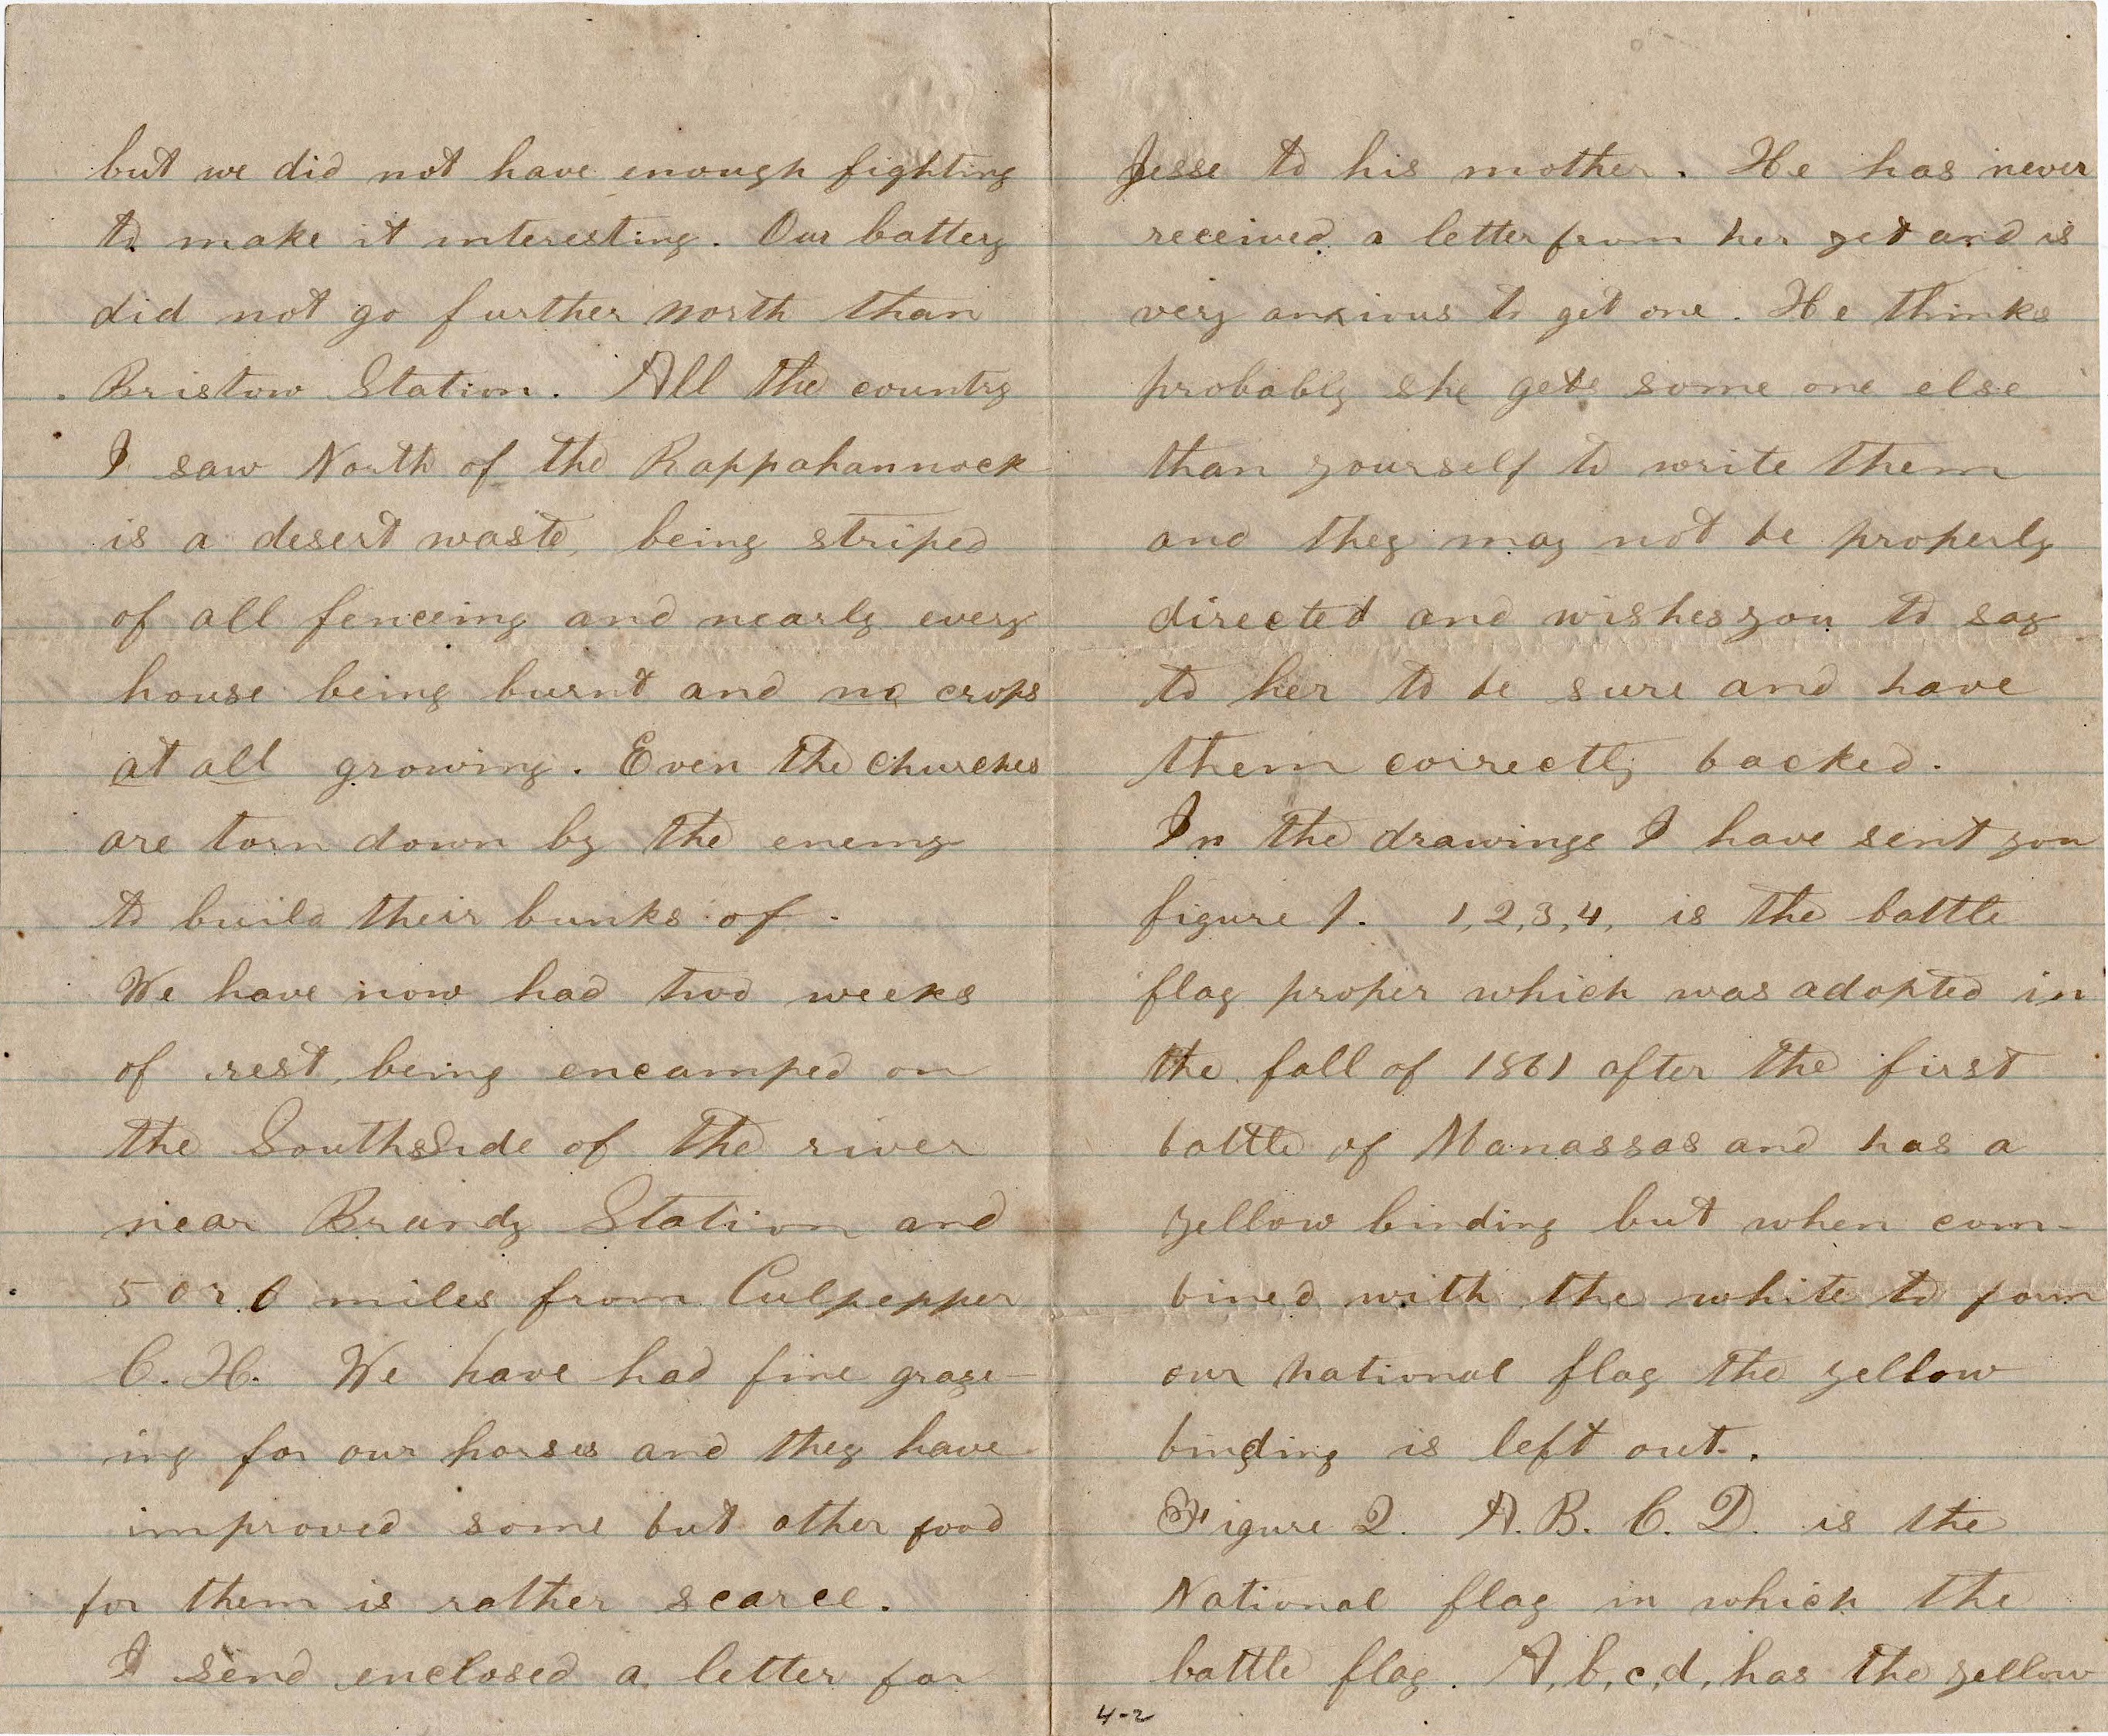 but we did not have enough fighting
to make it interesting. Our battery
did not go further north than
Bristow Station. All the country
I saw North of the Rappahannock
is a desert waste, being striped
of all fenceing and nearly every
house being burnt and no crops
at all growing. Even the churches
are torn down by the enemy
to build their bunks of.
We have now had two weeks
of rest, being encamped on
the SouthsSide of the river
near Brandy Station and
5 or 6 miles from Culpepper
C. H. We have had fine graze-
ing for our horses and they have
improved some but other food
for them is rather scarce.
I send enclosed a letter for
Jesse to his mother. He has never
received a letter from her yet and is
very anxious to get one. He thinks
probably she gets some one else
than yourself to write them
and they may not be properly
directed and wishes you to say
to her to be sure and have
them correctly backed.
In the drawings I have sent you
figure 1. 1,2,3,4, is the battle
flag proper which was adopted in
the fall of 1861 after the first
battle of Manassas and has a
yellow binding but when com-
bined with the white to form
our national flag the yellow
binding is left out.
Figure 2. A. B. C. D. is the
National flag in which the
battle flag. A, b, c, d, has the yellow
4-2